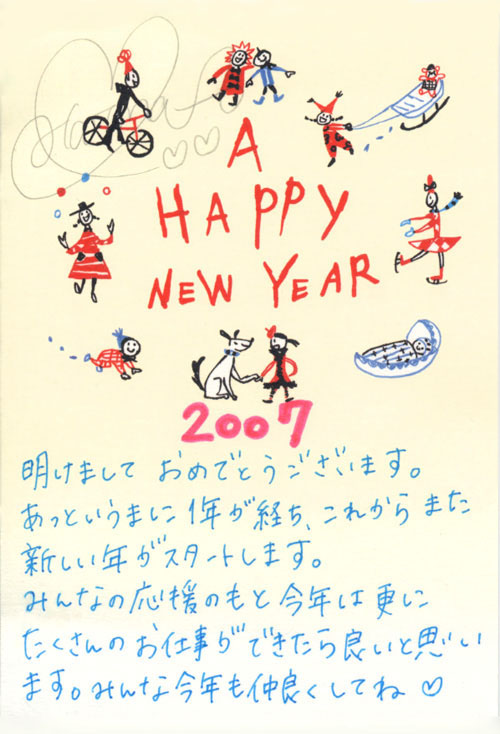 A
HAPPY
NEW YEAR
2007
明けまして おめでとうございます。
あっというまに1年が経ち、これからまた
新しい年がスタートします。
みんなの応援のもと今年は更に
たくさんのお仕事ができたら良いと思い
ます。みんな今年も仲良くしてね♡